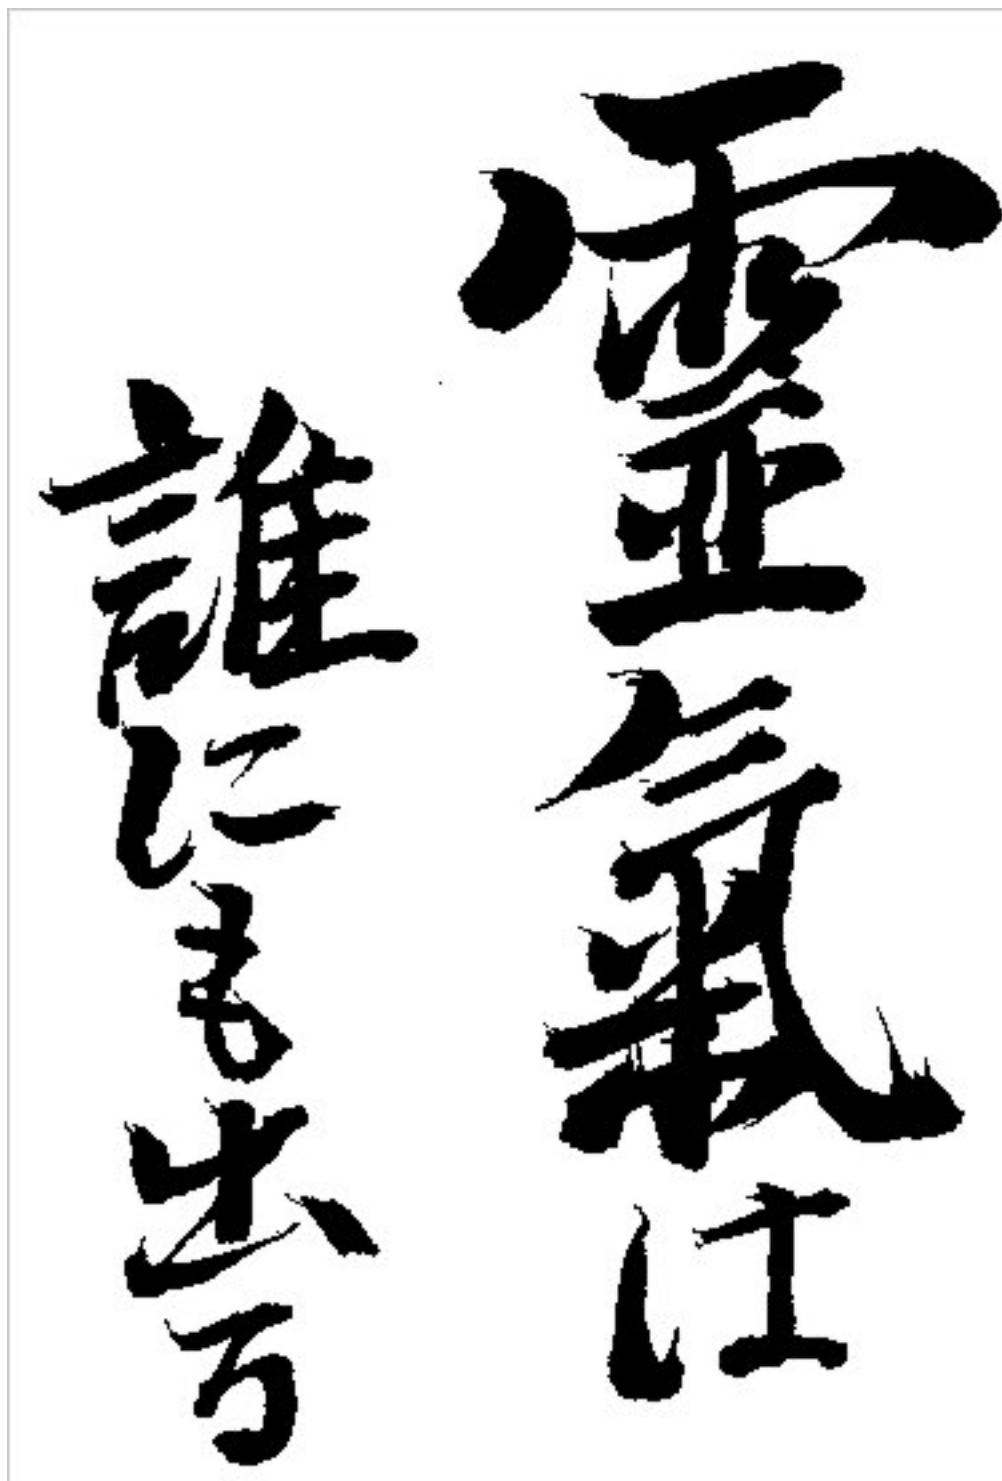 靈氣は
誰にも出る